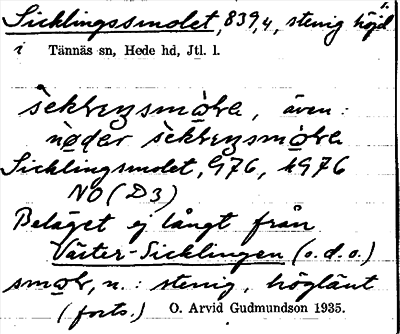 Sicklingssmolet, 839,4, stenig höjd
i Tännäs sn, Hede hd, Jtl. l.
även:
Sicklingsmolet, G76, h976
NO (D3)
Beläget ej långt från
Väster-Sicklingen (o.d.o.)
n.: stenig, höglänt
(forts.) O. Arvid Gudmundson 1935.